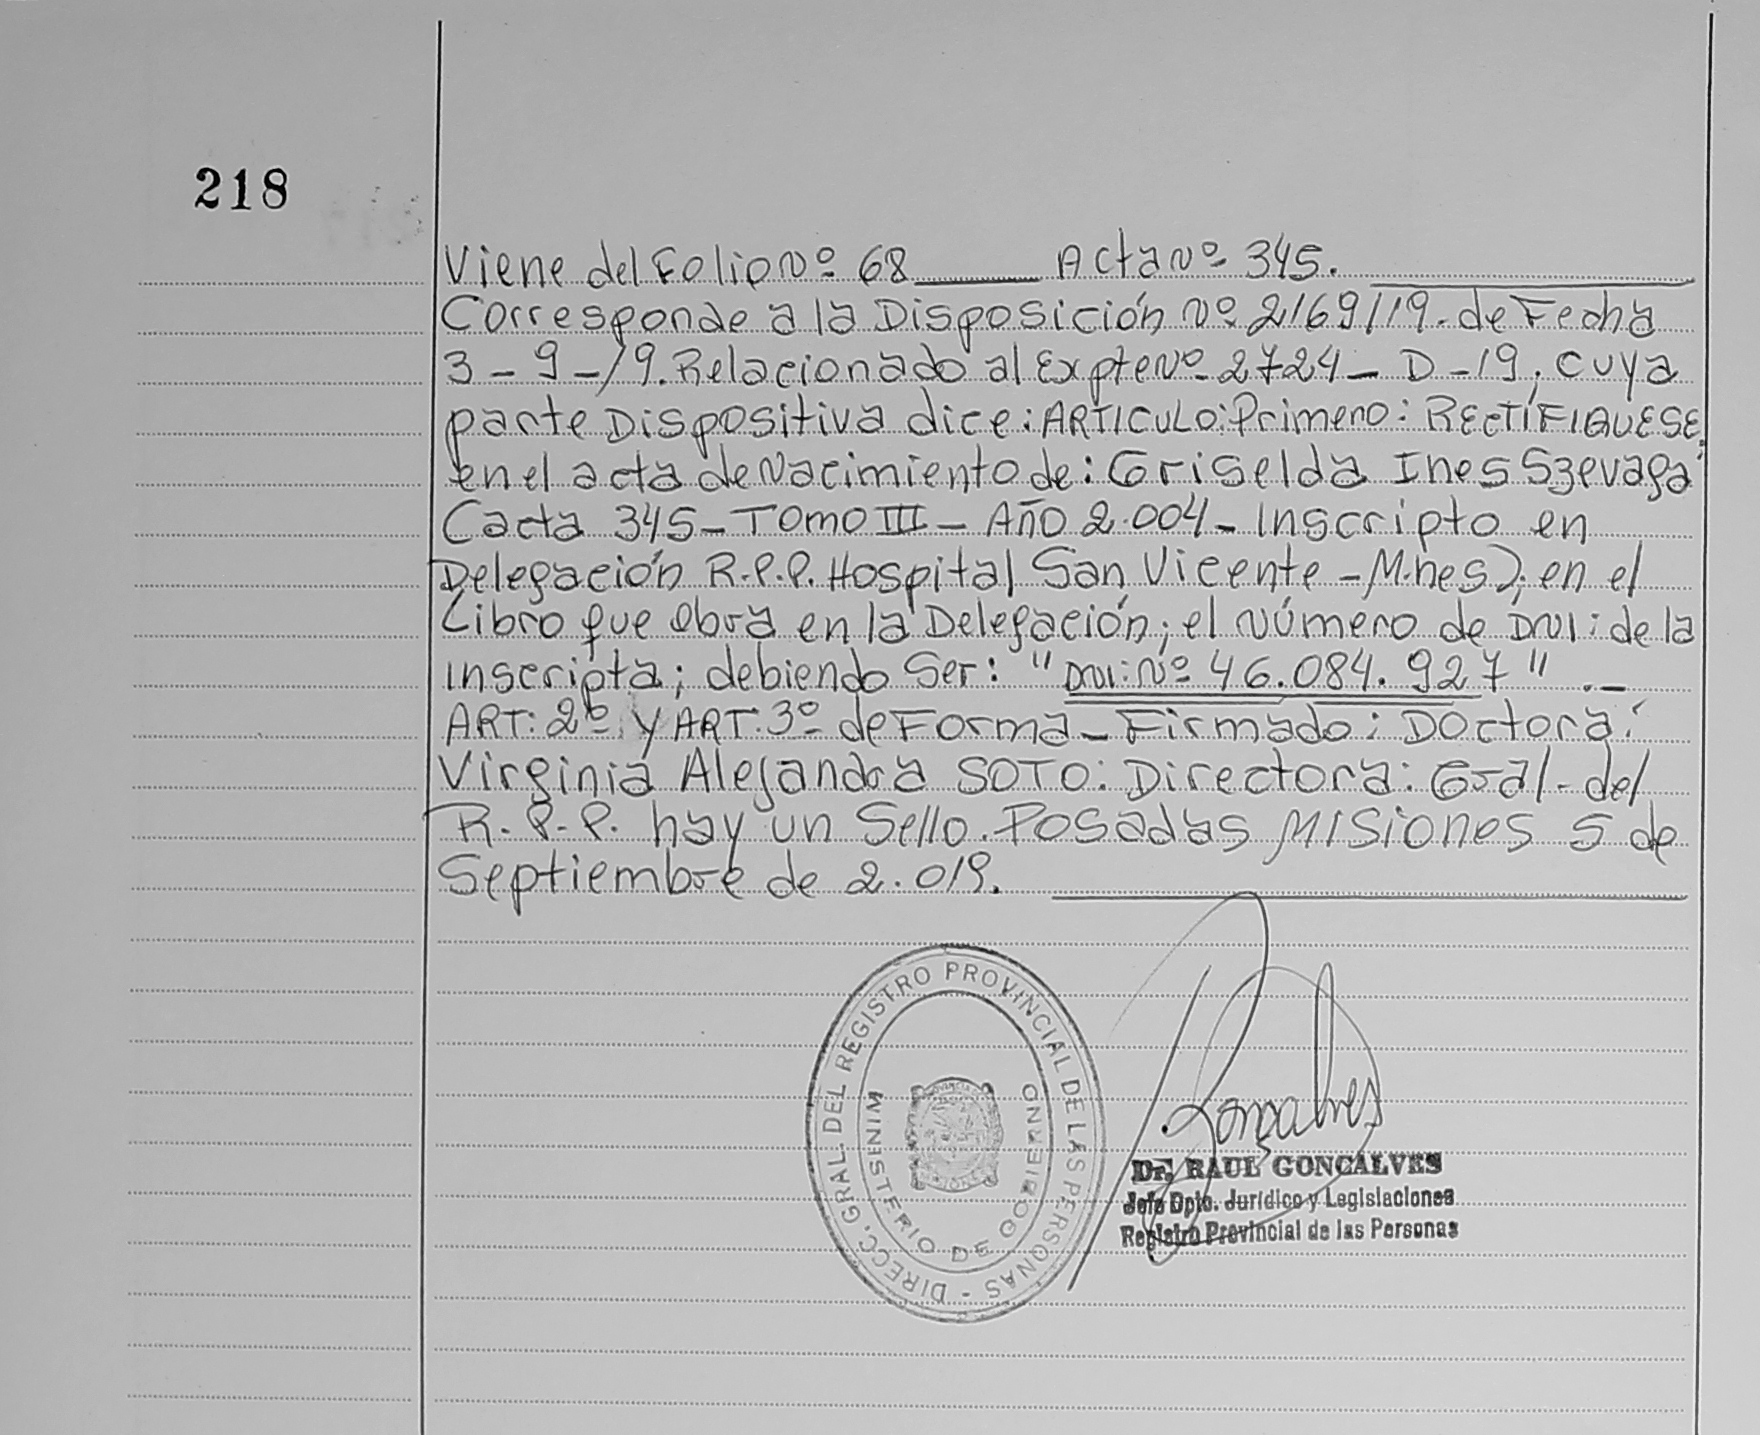 218
Viene del Folio Nº 68 Acta Nº 345.
Corresponde a la Disposición Nº 2169/19. de Fecha
3-9-19. Relacionado al Expte Nº 2724-D-19; cuya
parte Dispositiva dice: ARTICULO: Primero: RECTÍFIQUESE
en el acta de Nacimiento de: Griselda Ines Szevaga
Cacta 345-TOMO III-Año 2.004-Inscripto en
Delegación R.P.P. Hospital San Vicente-M.nes); en el
Libro que obra en la Delegación; el Número de DNI: de la
inscripta; debiendo Ser: "DNI: Nº 46.084.927" .-
ART: 2º y ART: 3º de Forma-Firmado: Doctora:
Virginia Alejandra SOTO: Directora: Gral-del
R.P.P. hay un Sello. Posadas Misiones 5 de
Septiembre de 2.019.
DIRECC. GRAL. DEL REGISTRO PROVINCIAL DE LAS PERSONAS -
MINISTERIO DE GOBIERNO
Goncalves
Dr. RAUL GONCALVES
Jefe Dpto. Jurídico y Legislaciones
Registro Provincial de las Personas